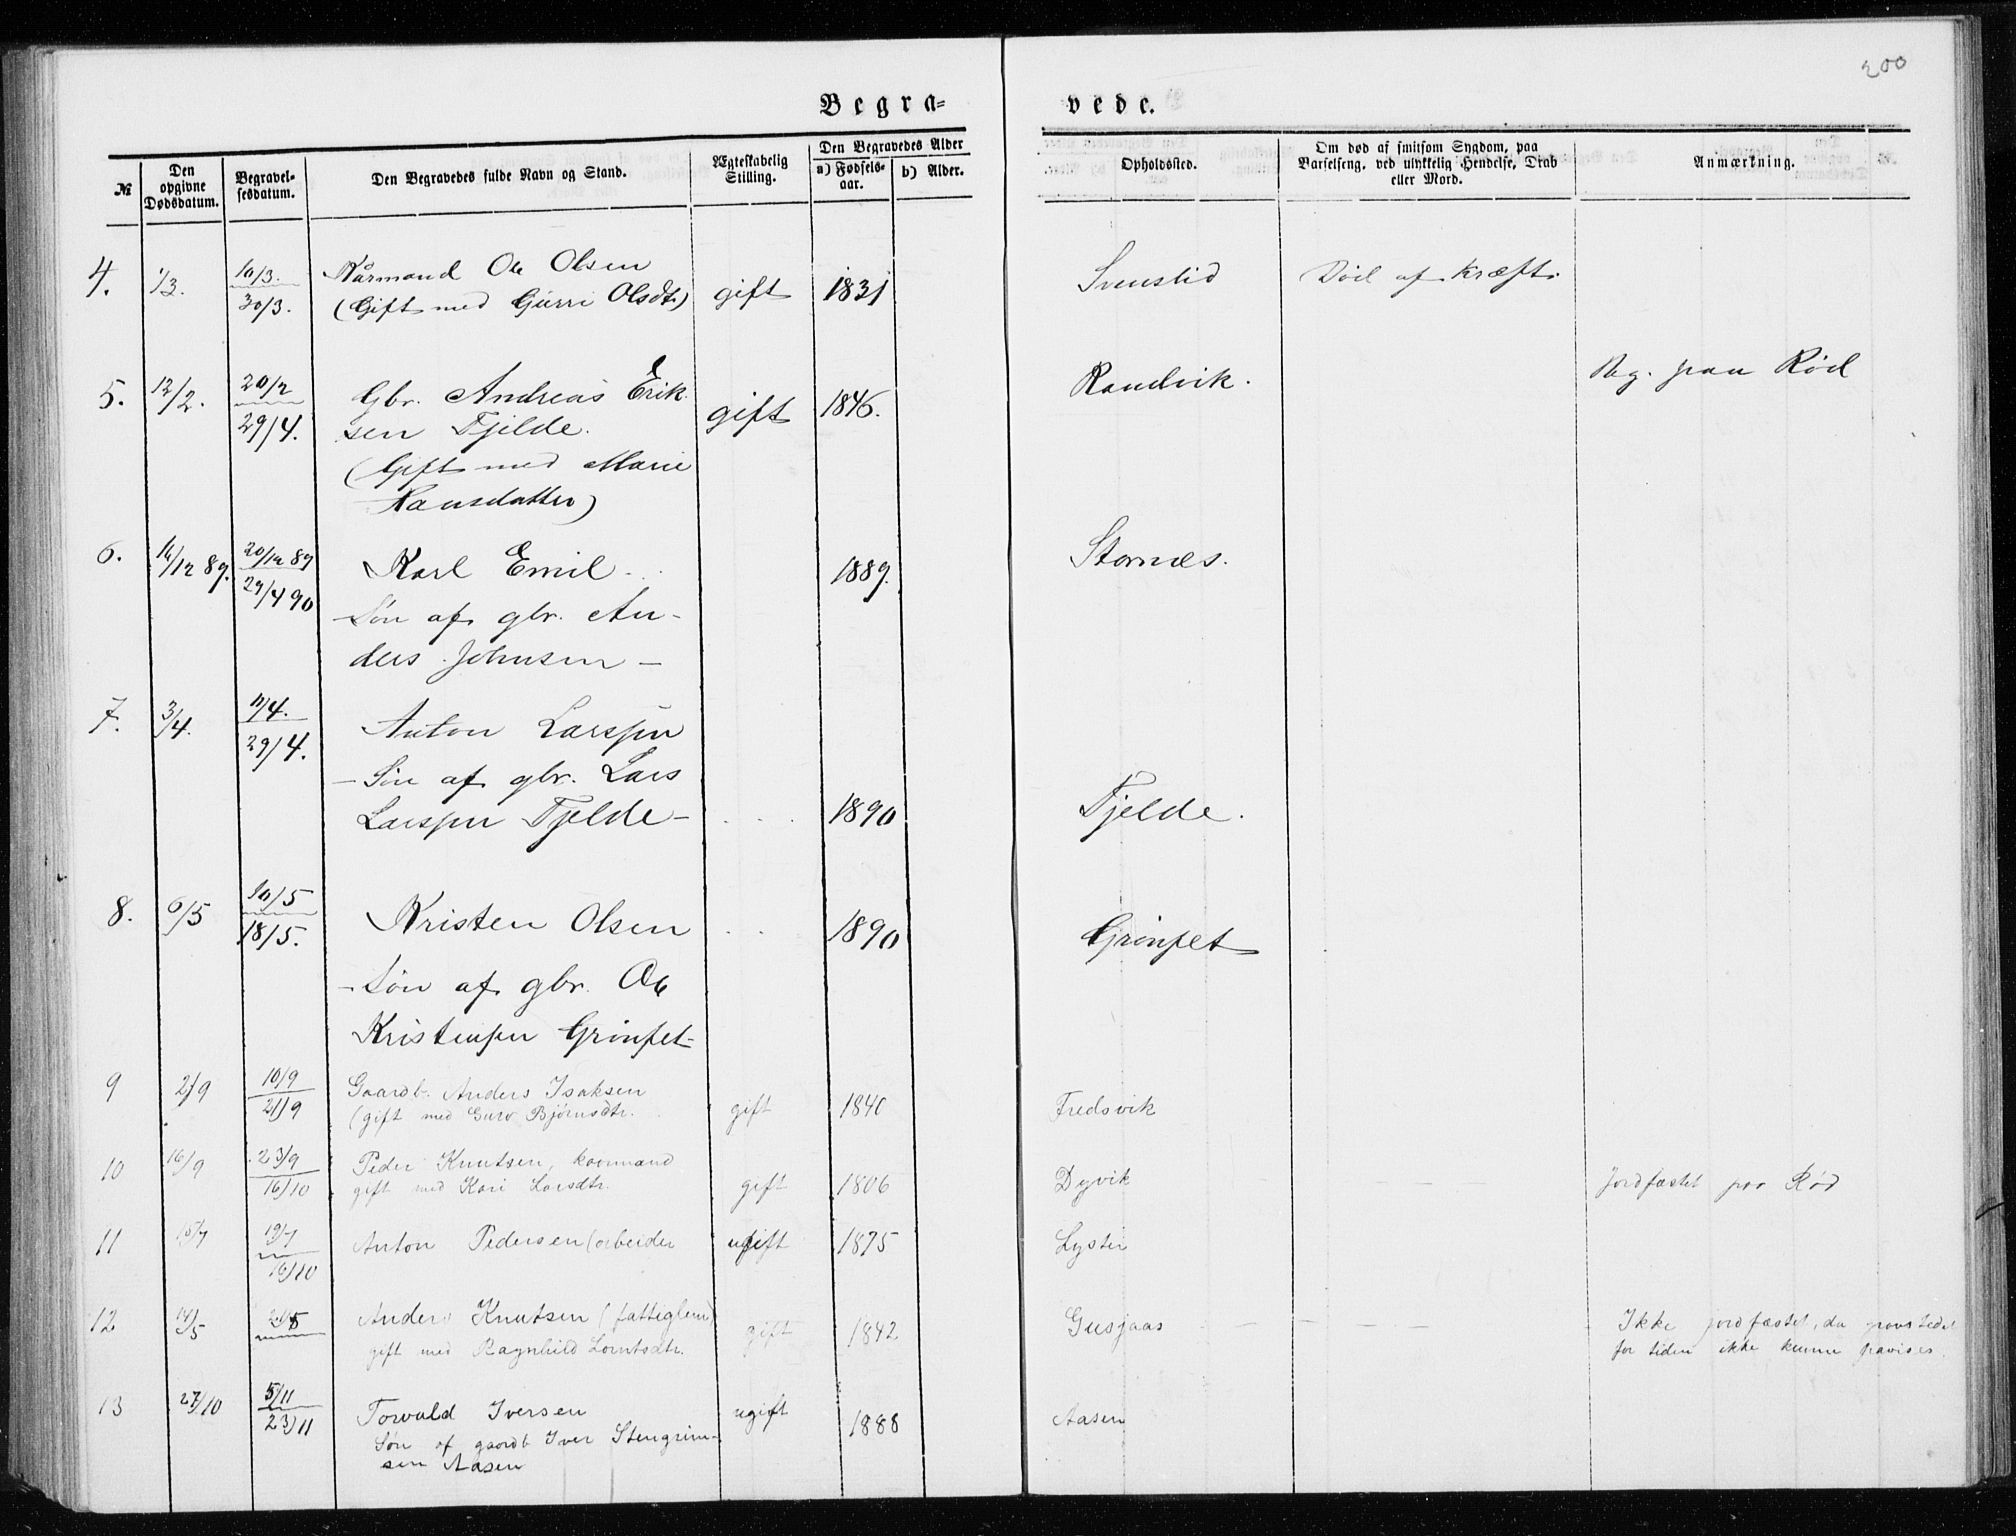 200
Begra=
vede.
№
Den opgivne Dødsdatum.
Begravel-sesdatum.
Den Begravedes fulde Navn og Stand.
Ægteskabelig Stilling.
Den Begravedes Alder
a) Fødsels-aar.
b) Alder.
Opholdssted.
Om død af smitsom Sygdom, paa Barselseng, ved ulykkelig Hendelse, Drab eller Mord.
Anmærkning.
4. 1/3. 10/3. Kårmand Ole Olsen Svenslid Död af Kræft.
30/3. (Gift med Gurri Olsdt.) gift 1831
5. 12/2. 20/2 Gbr. Andreas Erik- gift 1846. Randvik. Beg. paa Rød
29/4. sen Fjelde.
(Gift med Marie
Hansdatter)
6. 14/12 89. 20/12 89 Karl Emil. 1889. Stornæs.
29/4 90 - Sön af gbr. An-
ders Johnsen -
7. 3/4. 11/4. Anton Larssen
29/4. - Sön af gbr. Lars
Larssen Fjelde - 1890 Fjelde.
8. 6/5 10/5 Kristen Olsen 1890 Grönset
18/5. - Sön af gbr. Ole
Kristensen Grönset -
9 2/9 10/9 Gaardb. Anders Isaksen
21/9 (gift med Guro Bjørnsdtr. gift 1840 Fredsvik
10 16/9 23/9 Peder Knutsen, kaarmand
16/10 gift med Kari Larsdtr. gift 1806 Dyvik Jordfæstet paa Rød
11 15/7 19/7 Anton Pedersen (arbeider ugift 1875 Lyster
16/10
12 14/5 21/5 Anders Knutsen (fattiglem) gift 1842 Gusjaas Ikke jordfæstet, da gravstedet
gift med Ragnhild Lorntsdtr. for tiden ikke kunne paavises.
13 27/10 5/11 Torvald Iversen ugift 1888 Aasen
23/11 Søn af gaardb Iver Stengrim-
sen Aasen